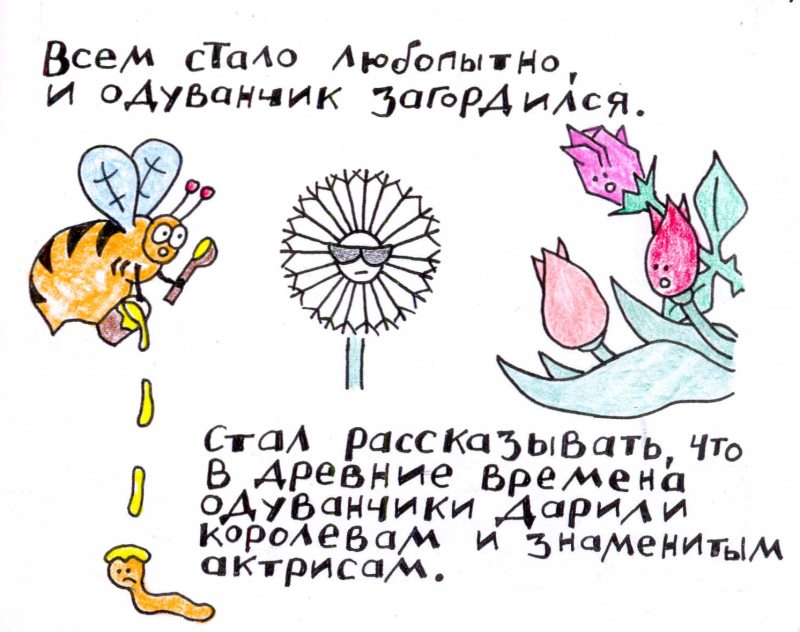 Всем стало любопытно,
и одуванчик загордился.
Стал рассказывать, что
в древние времена
одуванчики дарили
королевам и знаменитым
актрисам.